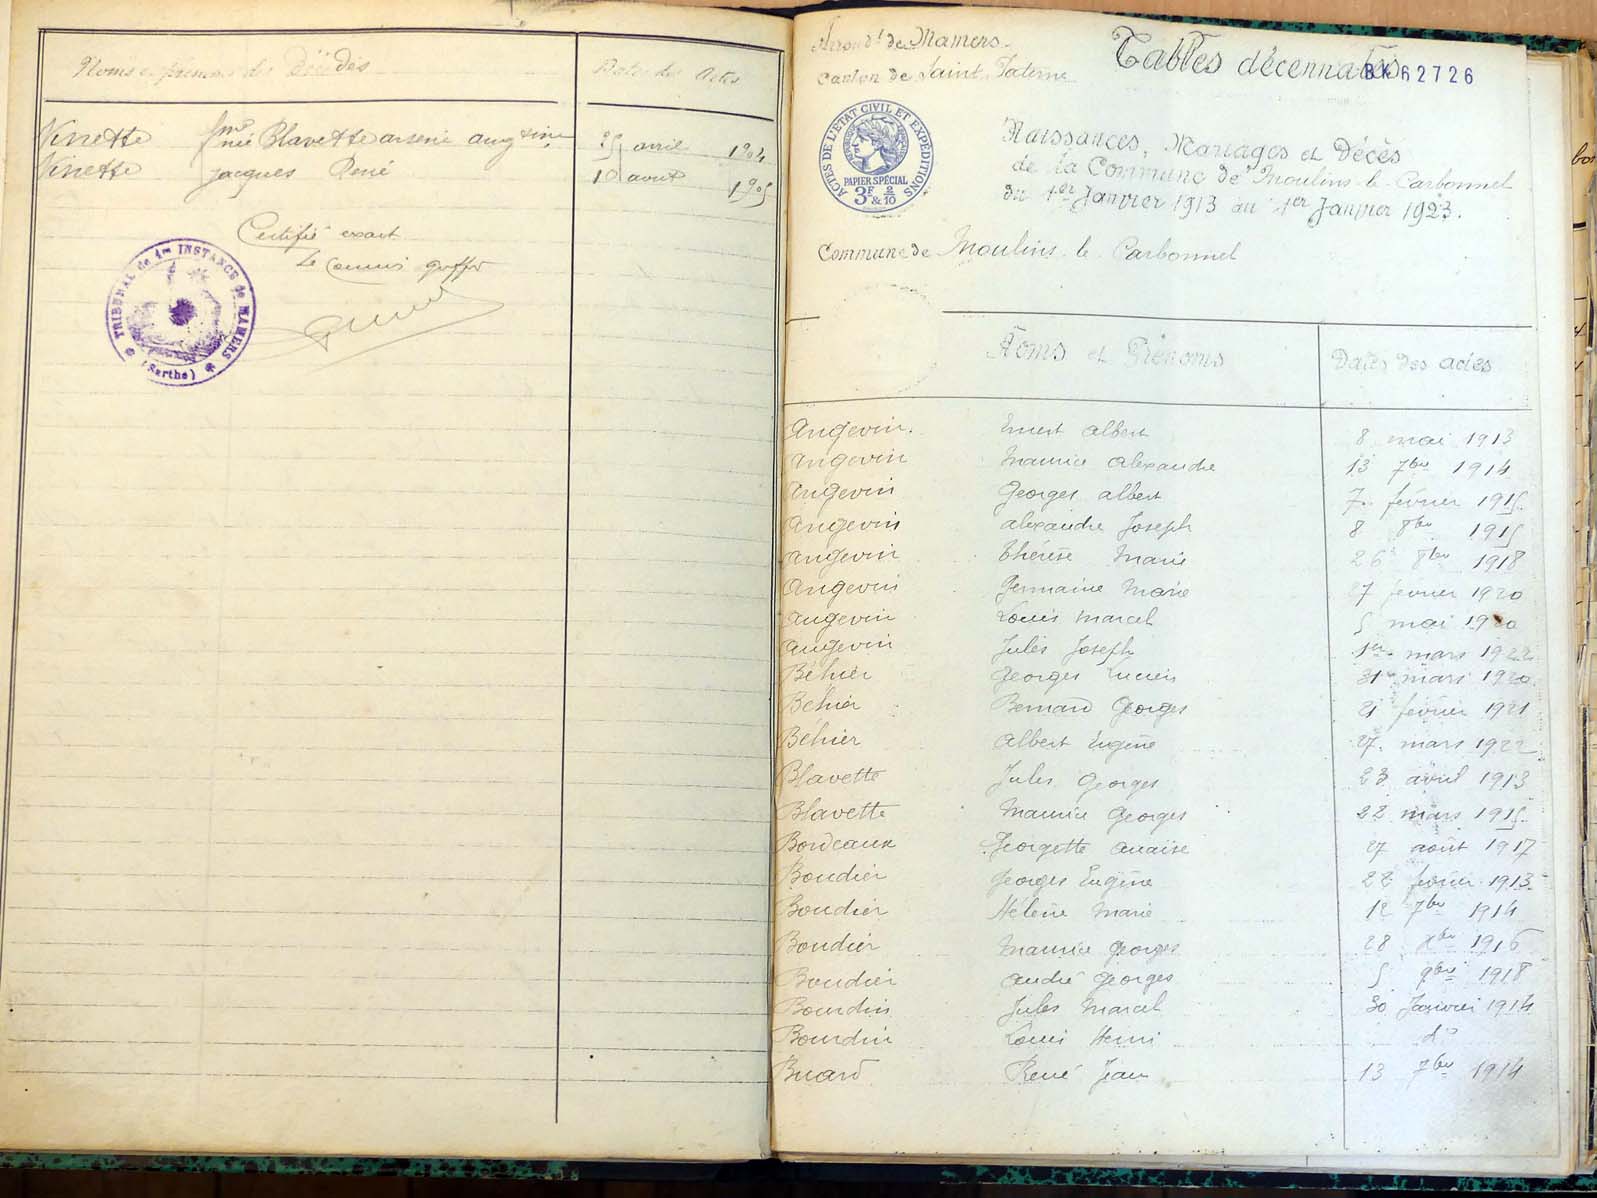 Noms et prénoms des Décédés
Dates des Actes
Vinette fme née Blavette arsène augustine 25 avril 1904
Vinette Jacques René 10 aout 1905
Certifié exact
Le commis greffier
TRIBUNAL de 1re INSTANCE de MAMERS
(Sarthe)
Arrondt de Mamers
Canton de Saint Paterne
Tables décennales
BK 62726
ACTES DE L'ETAT CIVIL ET EXPEDITIONS
PAPIER SPÉCIAL
3F & 2/10
Naissances, Mariages et Décès
de la Commune de Moulins le Carbonnel
du 1er Janvier 1913 au 1er Janvier 1923.
Commune de Moulins le Carbonnel
Noms et Prénoms
Dates des actes
Angevin Ernest albert 8 mai 1913
Angevin Maurice alexandre 13 7bre 1914
Angevin Georges albert 7 février 1915
Angevin alexandre Joseph 8 8bre 1915
Angevin Thérèse Marie 26 8bre 1918
Angevin Germaine Marie 27 février 1920
Angevin Louis Marcel 5 mai 1920
Angevin Jules Joseph 1er mars 1922
Béhier Georges Lucien 31 mars 1920
Béhier Bernard Georges 21 février 1921
Béhier Albert Eugène 27 mars 1922
Blavette Jules Georges 23 avril 1913
Blavette Maurice Georges 22 mars 1915
Bordeaux Georgette anaïse 27 août 1917
Boudier Georges Eugène 22 février 1913
Boudier Hélène Marie 12 7bre 1914
Boudier Maurice Georges 28 xbre 1916
Boudier André Georges 5 9bre 1918
Bourdin Jules Marcel 30 Janvier 1914
Bourdin Louis Henri do
Buard René Jean 13 7bre 1914